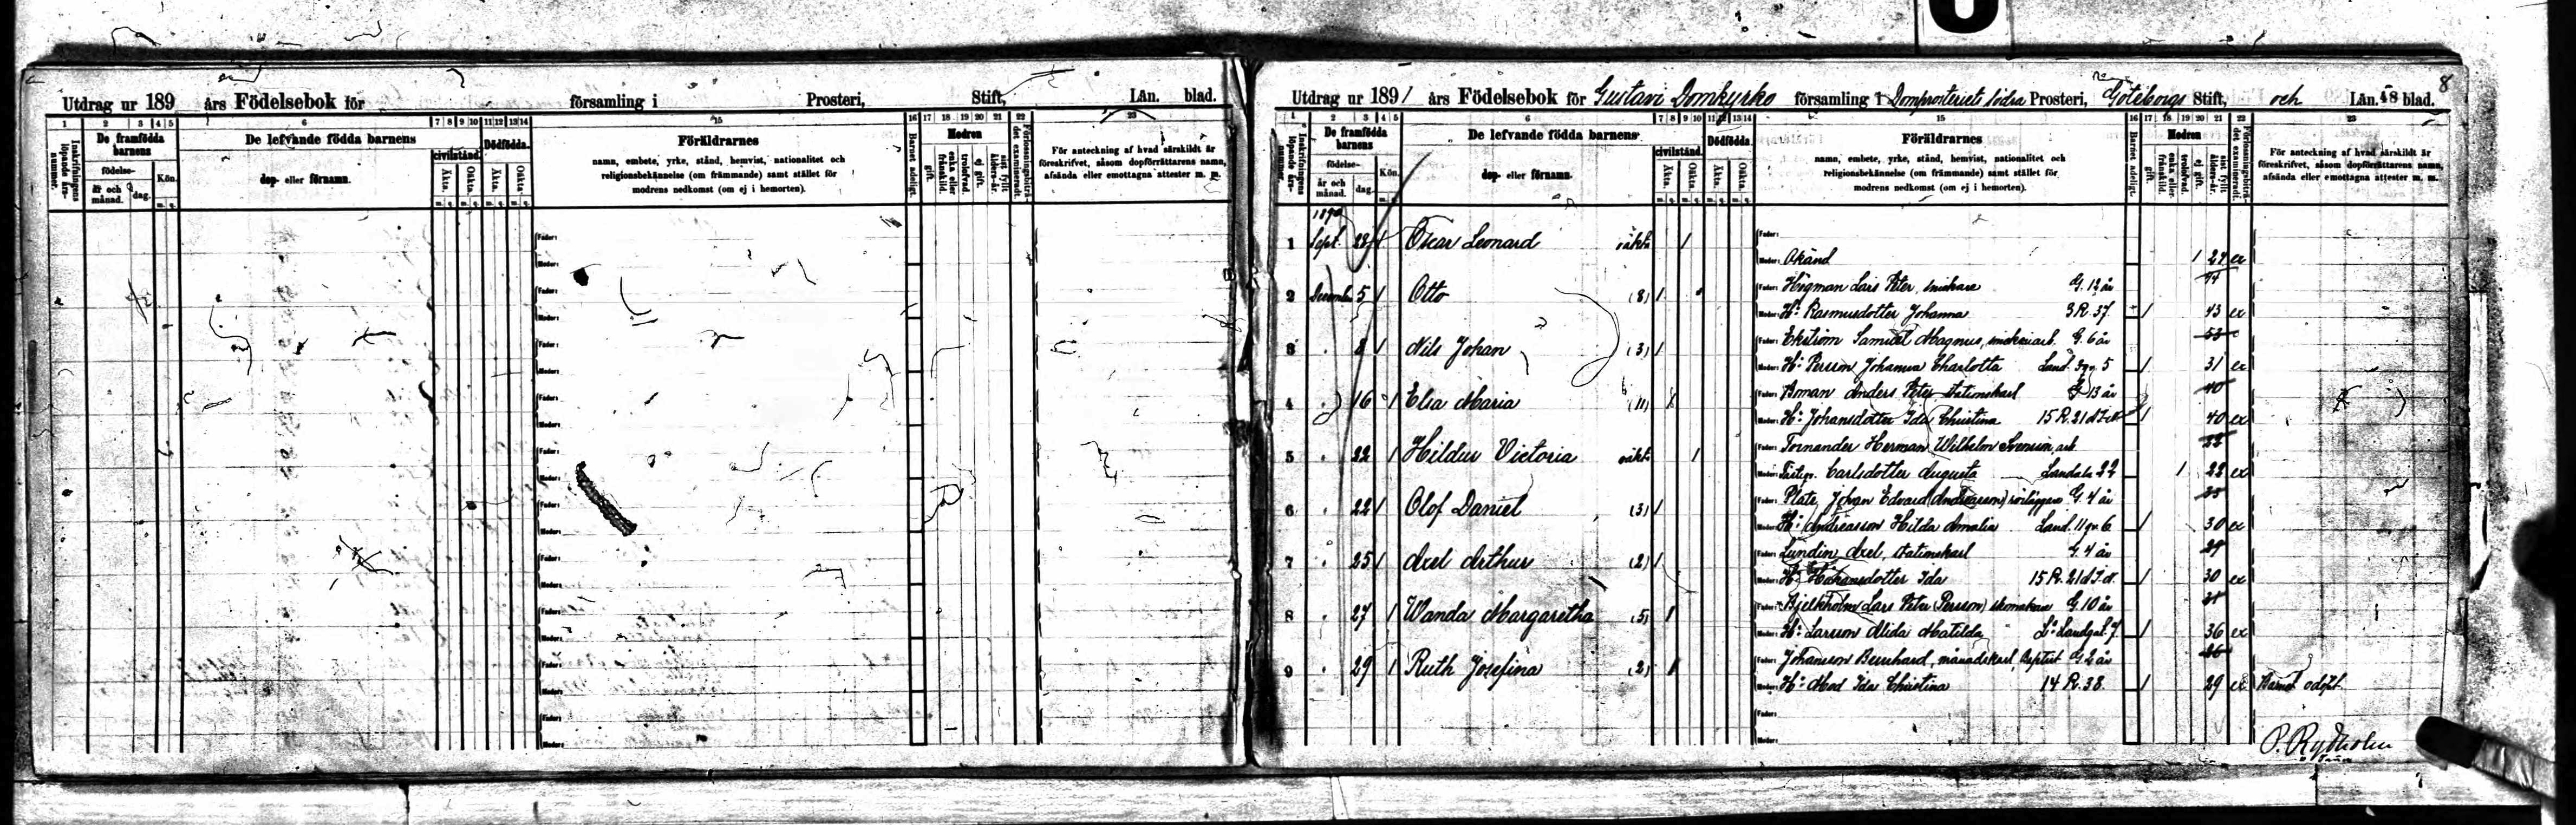 8
Utdrag ur 189 års Födelsebok för församling i Prosteri, Stift, Län. blad.
1 2 3 4 5 6 7 8 9 10 11 12 13 14 15 16 17 18 19 20 21 22 23
Inskrifningens löpande års-nummer.
De framfödda barnens
födelse-
år och månad.
dag.
Kön.
De lefvande födda barnens
dop- eller förnamn.
civilstånd.
Dödfödda.
Äkta. Oäkta. Äkta. Oäkta.
Föräldrarnes
namn, embete, yrke, stånd, hemvist, nationalitet och
religionsbekännelse (om främmande) samt stället för
modrens nedkomst (om ej i hemorten).
Barnet adeligt.
Modren
gift.
enka eller frånskild.
trolofvad.
ej gift.
sist fyllt ålders-år.
Förlossningsbiträdet examineradt.
För anteckning af hvad särskildt är
föreskrifvet, såsom dopförrättarens namn,
afsända eller emottagna attester m. m.
Utdrag ur 1891 års Födelsebok för Gustavi Domkyrko församling i Domprosteriet södra Prosteri, Göteborgs Stift, och Län. 48 blad.
1 2 3 4 5 6 7 8 9 10 11 12 13 14 15 16 17 18 19 20 21 22 23
Inskrifningens löpande års-nummer
De framfödda barnens
födelse-
år och månad.
dag.
Kön.
De lefvande födda barnens
dop- eller förnamn.
civilstånd.
Dödfödda.
Äkta. Oäkta. Äkta. Oäkta.
Föräldrarnes
namn, embete, yrke, stånd, hemvist, nationalitet och
religionsbekännelse (om främmande) samt stället för
modrens nedkomst (om ej i hemorten).
Barnet adeligt.
Modren
gift.
enka eller frånskild.
trolofvad.
ej gift.
sist fyllt ålders-år.
Förlossningsbiträdet examineradt.
För anteckning af hvad särskildt är
föreskrifvet, såsom dopförrättarens namn,
afsända eller emottagna attester m. m.
1890
1 Sept. 28 1 Oscar Leonard oäkta 1 Fader:
Moder: Okänd 1 24 ex
2 December 5 1 Otto (8) 1 Fader: Högman Lars Peter, snickare G. 12 år 44
Moder: H: Rasmusdotter Johanna 3 R. 37. 1 43 ex
3 8 1 Nils Johan (3) 1 Fader: Ekström Samuel Magnus, G. 6 år 53
Moder: H: Persson Johanna Charlotta Land. 3 gv. 5 1 31 ex
4 16 1 Elsa Maria (11) Fader: Boman Anders Peter stationskarl G. 13 år 40
Moder: H: Johansdotter Ida Christina 15 R. 21 1 40 ex
5 22 1 Hildur Victoria oäkta 1 Fader: Tornander Herman Wilhelm Svensson, arb. 22
Moder: Carlsdotter Augusta Landala 22 1 22 ex
6 22 1 Olof Daniel (3) 1 Fader: Platz Johan Edvard (Andreasson) rörläggare G. 4 år
Moder: H: Andreasson Hilda Amalia Land. 11 gv. 6 1 30 ex
7 25 1 Axel Arthur (2) 1 Fader: Lundin Axel, stationskarl G. 4 år 29
Moder: H: Ida 15 R. 21 1 30 ex
8 27 1 Wanda Margaretha (5) 1 Fader: Bjelkholm Lars Peter (Persson) skomakare G. 10 år
Moder: H: Larsson Alida Matilda Landsgat. 7. 1 36 ex
9 29 1 Ruth Josefina (2) 1 Fader: Johansson Bernhard, månadskarl, Baptist G. 2 år 26
Moder: H: Mod Ida Christina 14 R. 38. 1 29 ex Barnet odöpt.
Fader:
Moder:
P. Rydholm